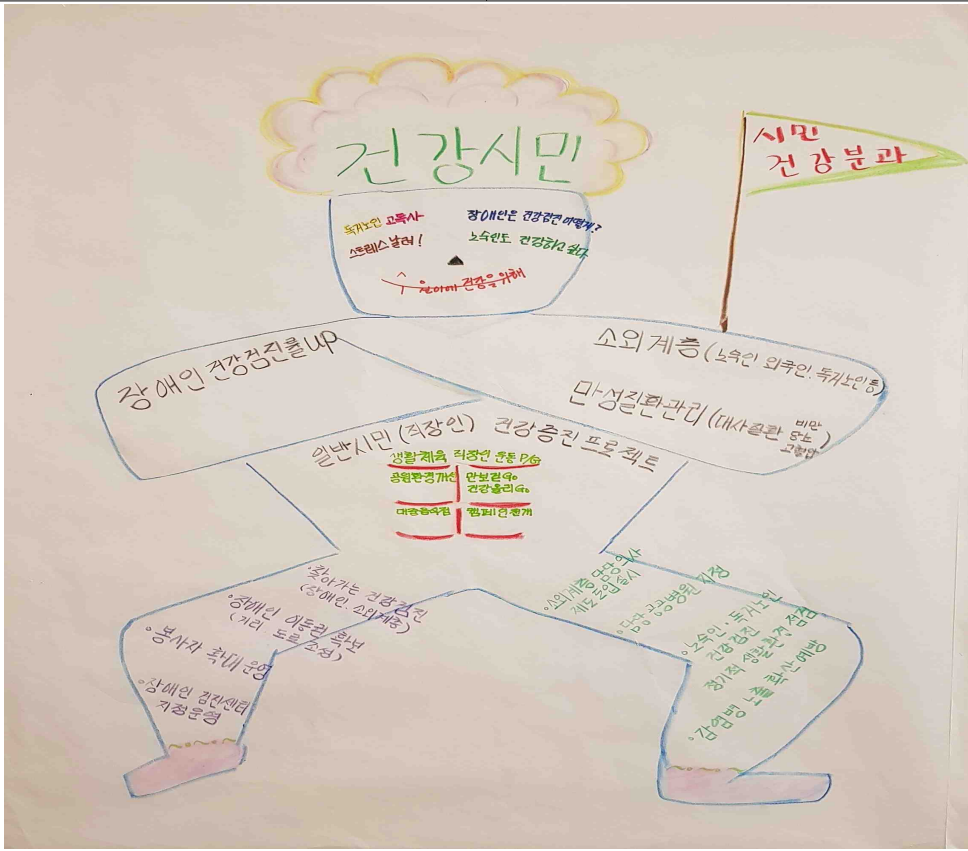 건강시민
시민
건강분과
독거노인 고독사
스트레스 날려!
장애인은 건강검진 어떻게?
노숙인도 건강하고 싶다
건강을 위해
장애인 건강검진률 up
소외계층 (노숙인. 외국인. 독거노인 등)
만성질환관리 (대사질환 비만 당뇨 고혈압)
일반시민 (직장인) 건강증진 프로젝트
생활체육 직장인 운동 P/G
공원환경개선
만보걷Go
건강올리Go
캠페인전개
·찾아가는 건강검진
(장애인. 소외계층)
·장애인 이동권 확보
(거리 도로 조성)
·봉사자 확대 운영
·장애인 검진센터
지정운영
·소외계층 담당 의사
제도 도입 실시
·담당 공공병원 지정
·노숙인·독거노인
건강검진
정기적 생활환경 점검
·감염병 노출 확산예방